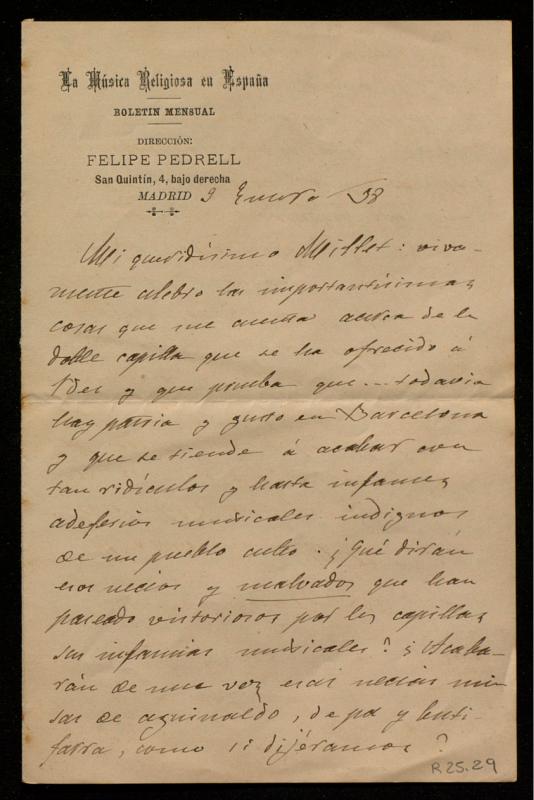 La Música Religiosa en España
BOLETIN MENSUAL
DIRECCIÓN:
FELIPE PEDRELL
San Quintín, 4, bajo derecha
MADRID 9 Enero /98
Mi queridísimo Millet: viva-
mente celebro las importantísimas
cosas que me cuenta acerca de la
doble capilla que se ha ofrecido á
Vdes y que prueba que... todavia
hay patria y gusto en Barcelona
y que se tiende á acabar con
tan ridículos y hasta infames
adefesios musicales indignos
de un pueblo culto. ¿Qué dirán
esos necios y malvados que han
paseado victoriosos por las capillas
sus infamias musicales? ¿Acaba-
rán de una vez esas necias mi-
sas de aguinaldo, de pa y buti-
farra, como si dijéramos?
R25.29